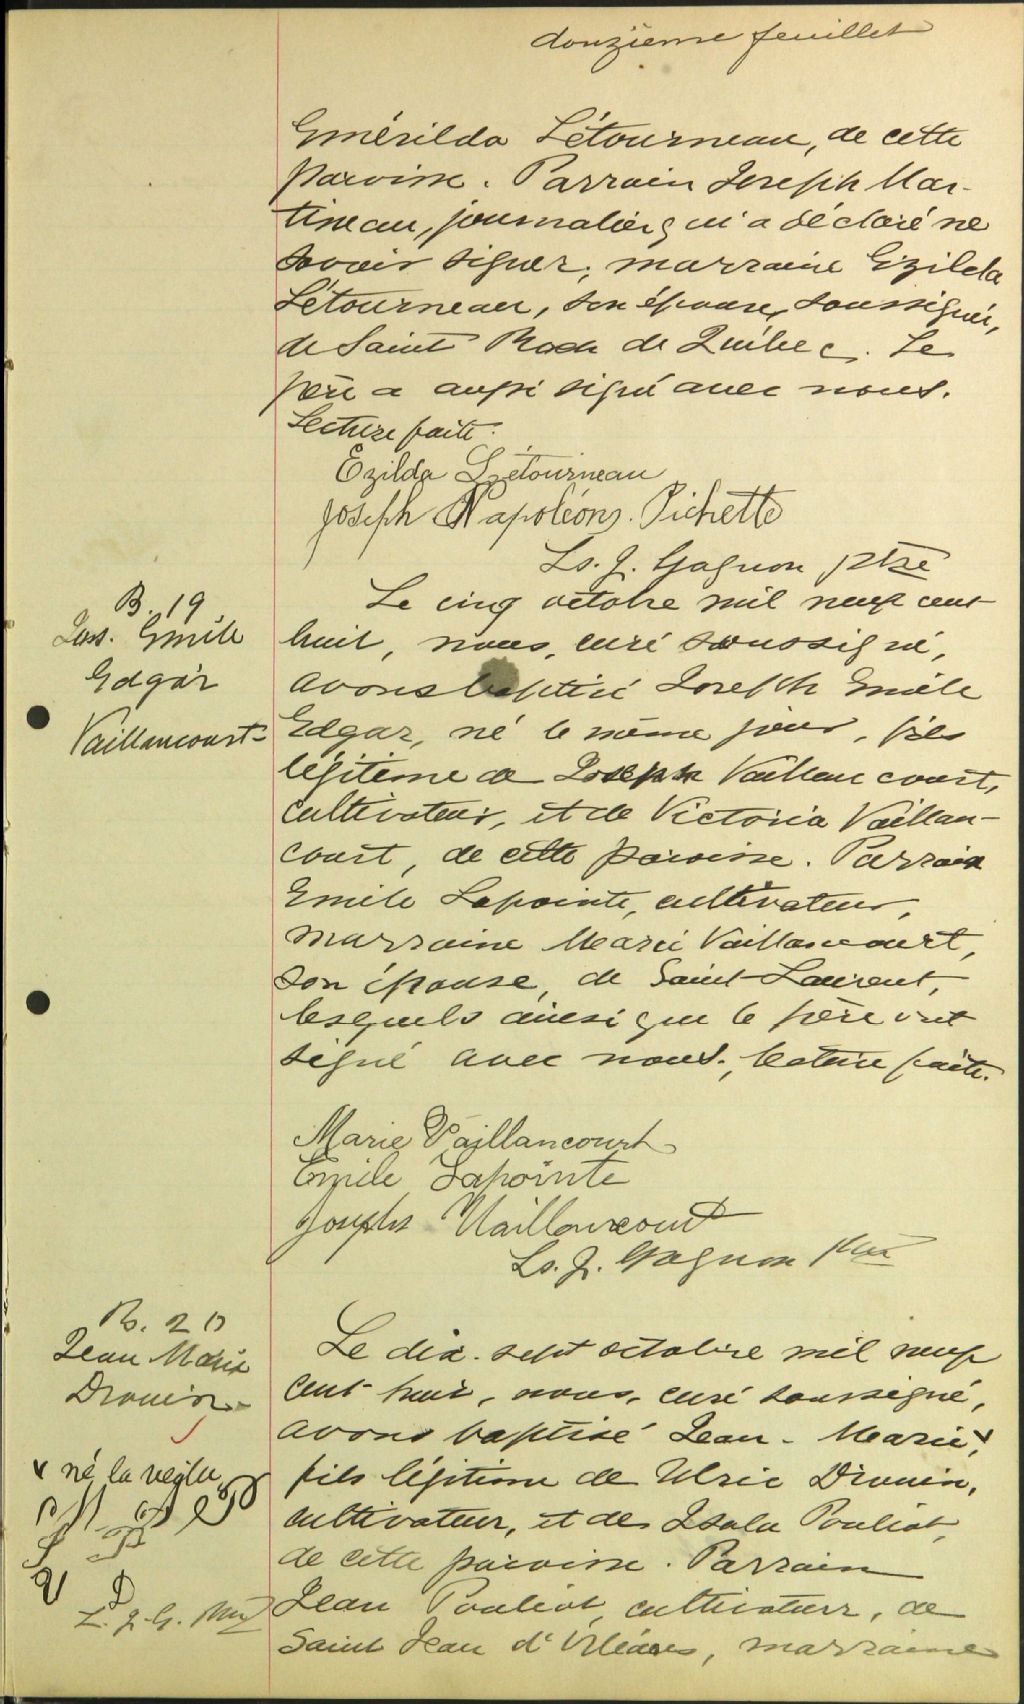 douzième feuillet
Emérilda Létourneau, de cette
paroisse. Parrain Joseph Mar-
tineau, journalier, qui a déclaré ne
savoir signer, marraine Ezilda
Létourneau, son épouse, soussignée,
de Saint Roch de Québec. Le
père a aussi signé avec nous.
Lecture faite.
Ezilda Létourneau
Joseph Napoléon Pichette
Ls. J. Gagnon ptre
B. 19
Jos. Emile
Edgar
Vaillancourt
Le cinq octobre mil neuf cent
huit, nous, curé soussigné,
avons baptisé Joseph Emile
Edgar, né le même jour, fils
légitime de Joseph Vaillancourt,
cultivateur, et de Victoria Vaillan-
court, de cette paroisse. Parrain
Emile Lapointe, cultivateur,
marraine Marie Vaillancourt,
son épouse, de Saint-Laurent,
lesquels ainsi que le père ont
signé avec nous, lecture faite.
Marie Vaillancourt
Emile Lapointe
Joseph Vaillancourt
Ls. J. Gagnon ptre
B. 20
Jean Marie
Drouin
Le dix-sept octobre mil neuf
cent huit, nous, curé soussigné,
avons baptisé Jean-Marie,
fils légitime de Ulric Drouin,
cultivateur, et de Pouliot,
de cette paroisse. Parrain
Jean Pouliot, cultivateur, de
Saint Jean d'Orléans, marraine
né la veille
L. J. G. ptre